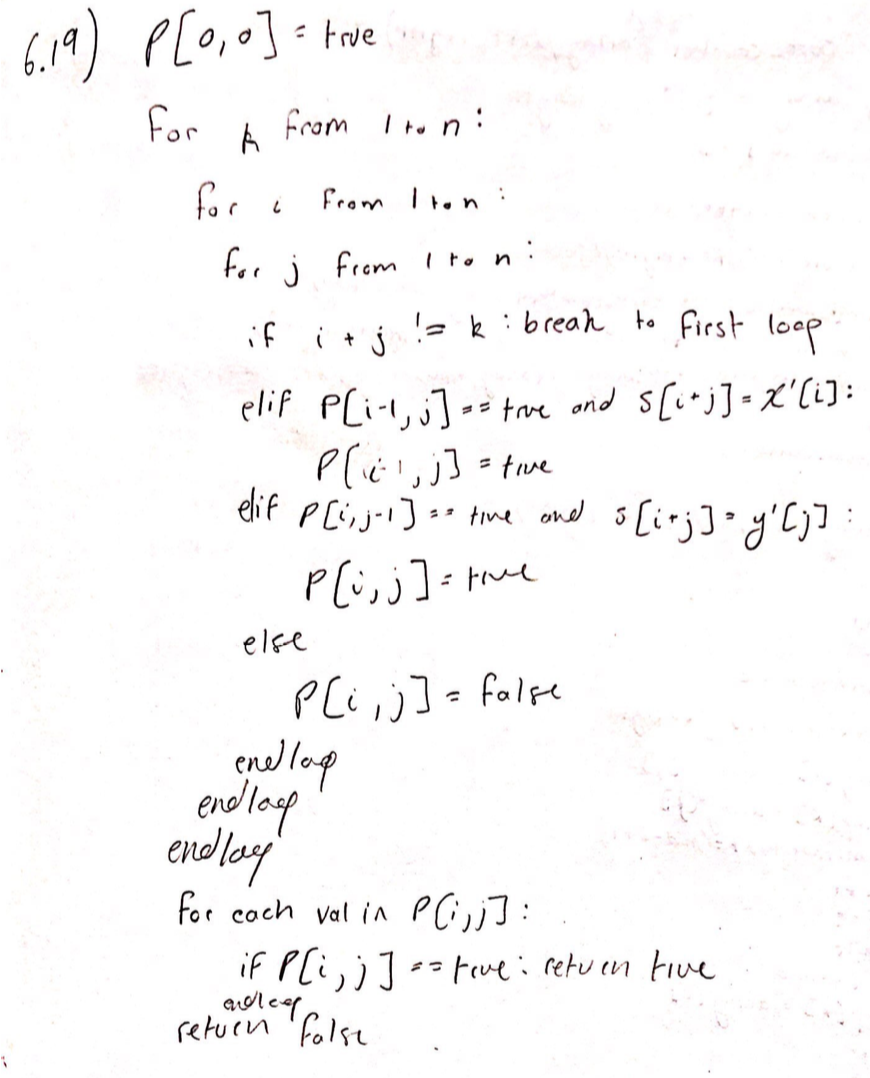 6.19) P[0,0] = true
for k from 1 to n:
for i from 1 to n:
for j from 1 to n:
if i + j != k : break to first loop
elif P[i-1,j] == true and s[i+j] = x'[i]:
P[i-1,j] = true
elif P[i,j-1] == true and s[i+j] = y'[j]:
P[i,j] = true
else
P[i,j] = false
end loop
end loop
end loop
for each val in P[i,j]:
if P[i,j] == true: return true
end loop
return false